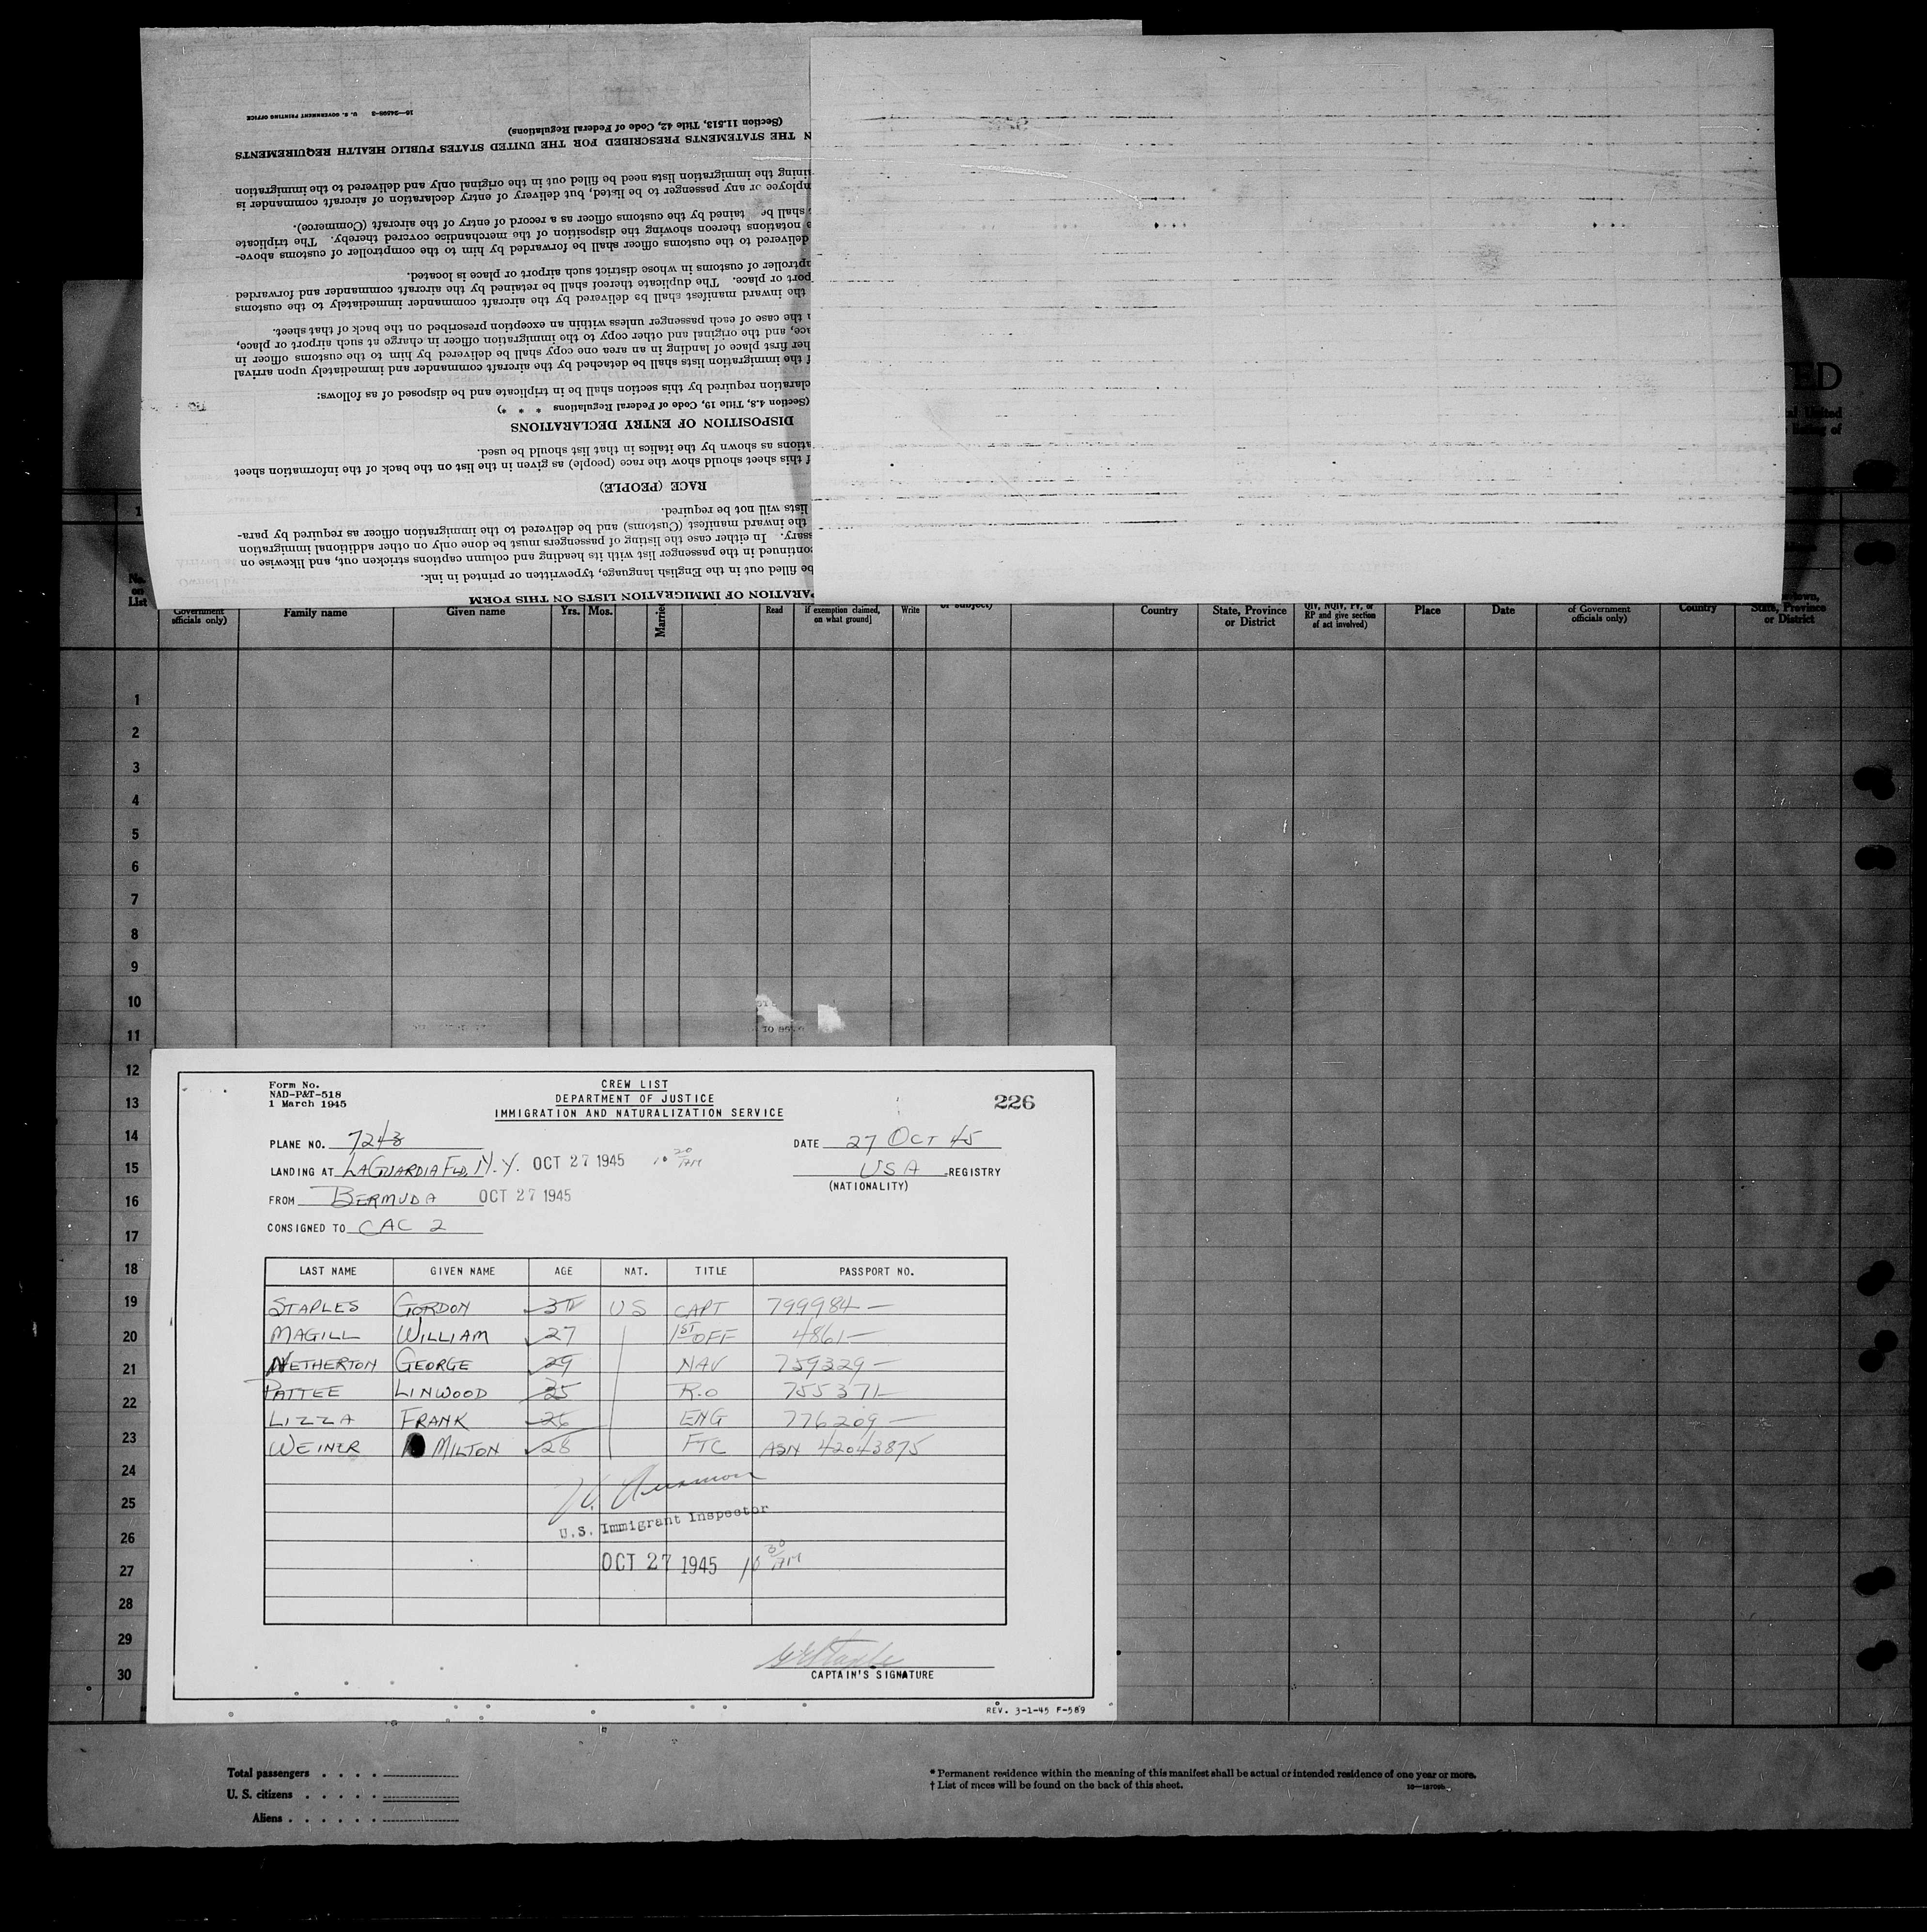 16—24566-3 U. S. GOVERNMENT PRINTING OFFICE
(Section 11.513, Title 42, Code of Federal Regulations)
N THE STATEMENTS PRESCRIBED FOR THE UNITED STATES PUBLIC HEALTH REQUIREMENTS
ining the immigration lists need be filled out in the original only and delivered to the immigration
mployee or any passenger to be listed, but delivery of entry declaration of aircraft commander is
shall be tained by the customs officer as a record of entry of the aircraft (Commerce).
e notations thereon showing the disposition of the merchandise covered thereby. The triplicate
delivered to the customs officer shall be forwarded by him to the comptroller of customs above-
mptroller of customs in whose district such airport or place is located.
port or place. The duplicate thereof shall be retained by the aircraft commander and forwarded
the inward manifest shall be delivered by the aircraft commander immediately to the customs
n the case of each passenger unless within an exception prescribed on the back of that sheet.
ace, and the original and other copy to the immigration officer in charge at such airport or place,
her first place of landing in an area one copy shall be delivered by him to the customs officer in
f the immigration lists shall be detached by the aircraft commander and immediately upon arrival
claration required by this section shall be in triplicate and be disposed of as follows:
(Section 4.8, Title 19, Code of Federal Regulations * * *)
DISPOSITION OF ENTRY DECLARATIONS
ations as shown by the italics in that list should be used.
f this sheet should show the race (people) as given in the list on the back of the information sheet
RACE (PEOPLE)
lists will not be required.
the inward manifest (Customs) and be delivered to the immigration officer as required by para-
ssary. In either case the listing of passengers must be done only on other additional immigration
continued in the passenger list with its heading and column captions stricken out, and likewise on
be filled out in the English language, typewritten or printed in ink.
PARATION OF IMMIGRATION LISTS ON THIS FORM
ED
al United
listing of
1
No. on List
Government officials only)
Family name
Given name
Yrs.
Mos.
Married
Read
if exemption claimed, on what ground]
Write
or subject)
Country
State, Province or District
QIV, NQIV, PV, or RP and give section of act involved)
Place
Date
of Government officials only)
Country
State, Province or District
1
2
3
4
5
6
7
8
9
10
11
12
13
14
15
16
17
18
19
20
21
22
23
24
25
26
27
28
29
30
Form No.
NAD-P&T-518
1 March 1945
CREW LIST
DEPARTMENT OF JUSTICE
IMMIGRATION AND NATURALIZATION SERVICE
226
PLANE NO. 7243
DATE 27 OCT 45
LANDING AT LAGUARDIA FLD, N.Y. OCT 27 1945 10 20 AM
USA REGISTRY
(NATIONALITY)
FROM BERMUDA OCT 27 1945
CONSIGNED TO CAC 2
LAST NAME GIVEN NAME AGE NAT. TITLE PASSPORT NO.
STAPLES GORDON US CAPT 799984 —
MAGILL WILLIAM 27 1ST OFF 4861 —
NETHERTON GEORGE 29 NAV 759329 —
PATTEE LINWOOD 25 R.O 755371 —
LIZZA FRANK 26 ENG 776209 —
WEINER MILTON 28 FTC ASN 42043875
U.S. Immigrant Inspector
OCT 27 1945 10 30 AM
CAPTAIN'S SIGNATURE
REV. 3-1-45 F-589
Total passengers . . . .
U. S. citizens . . . . .
Aliens . . . . . .
* Permanent residence within the meaning of this manifest shall be actual or intended residence of one year or more.
† List of races will be found on the back of this sheet.